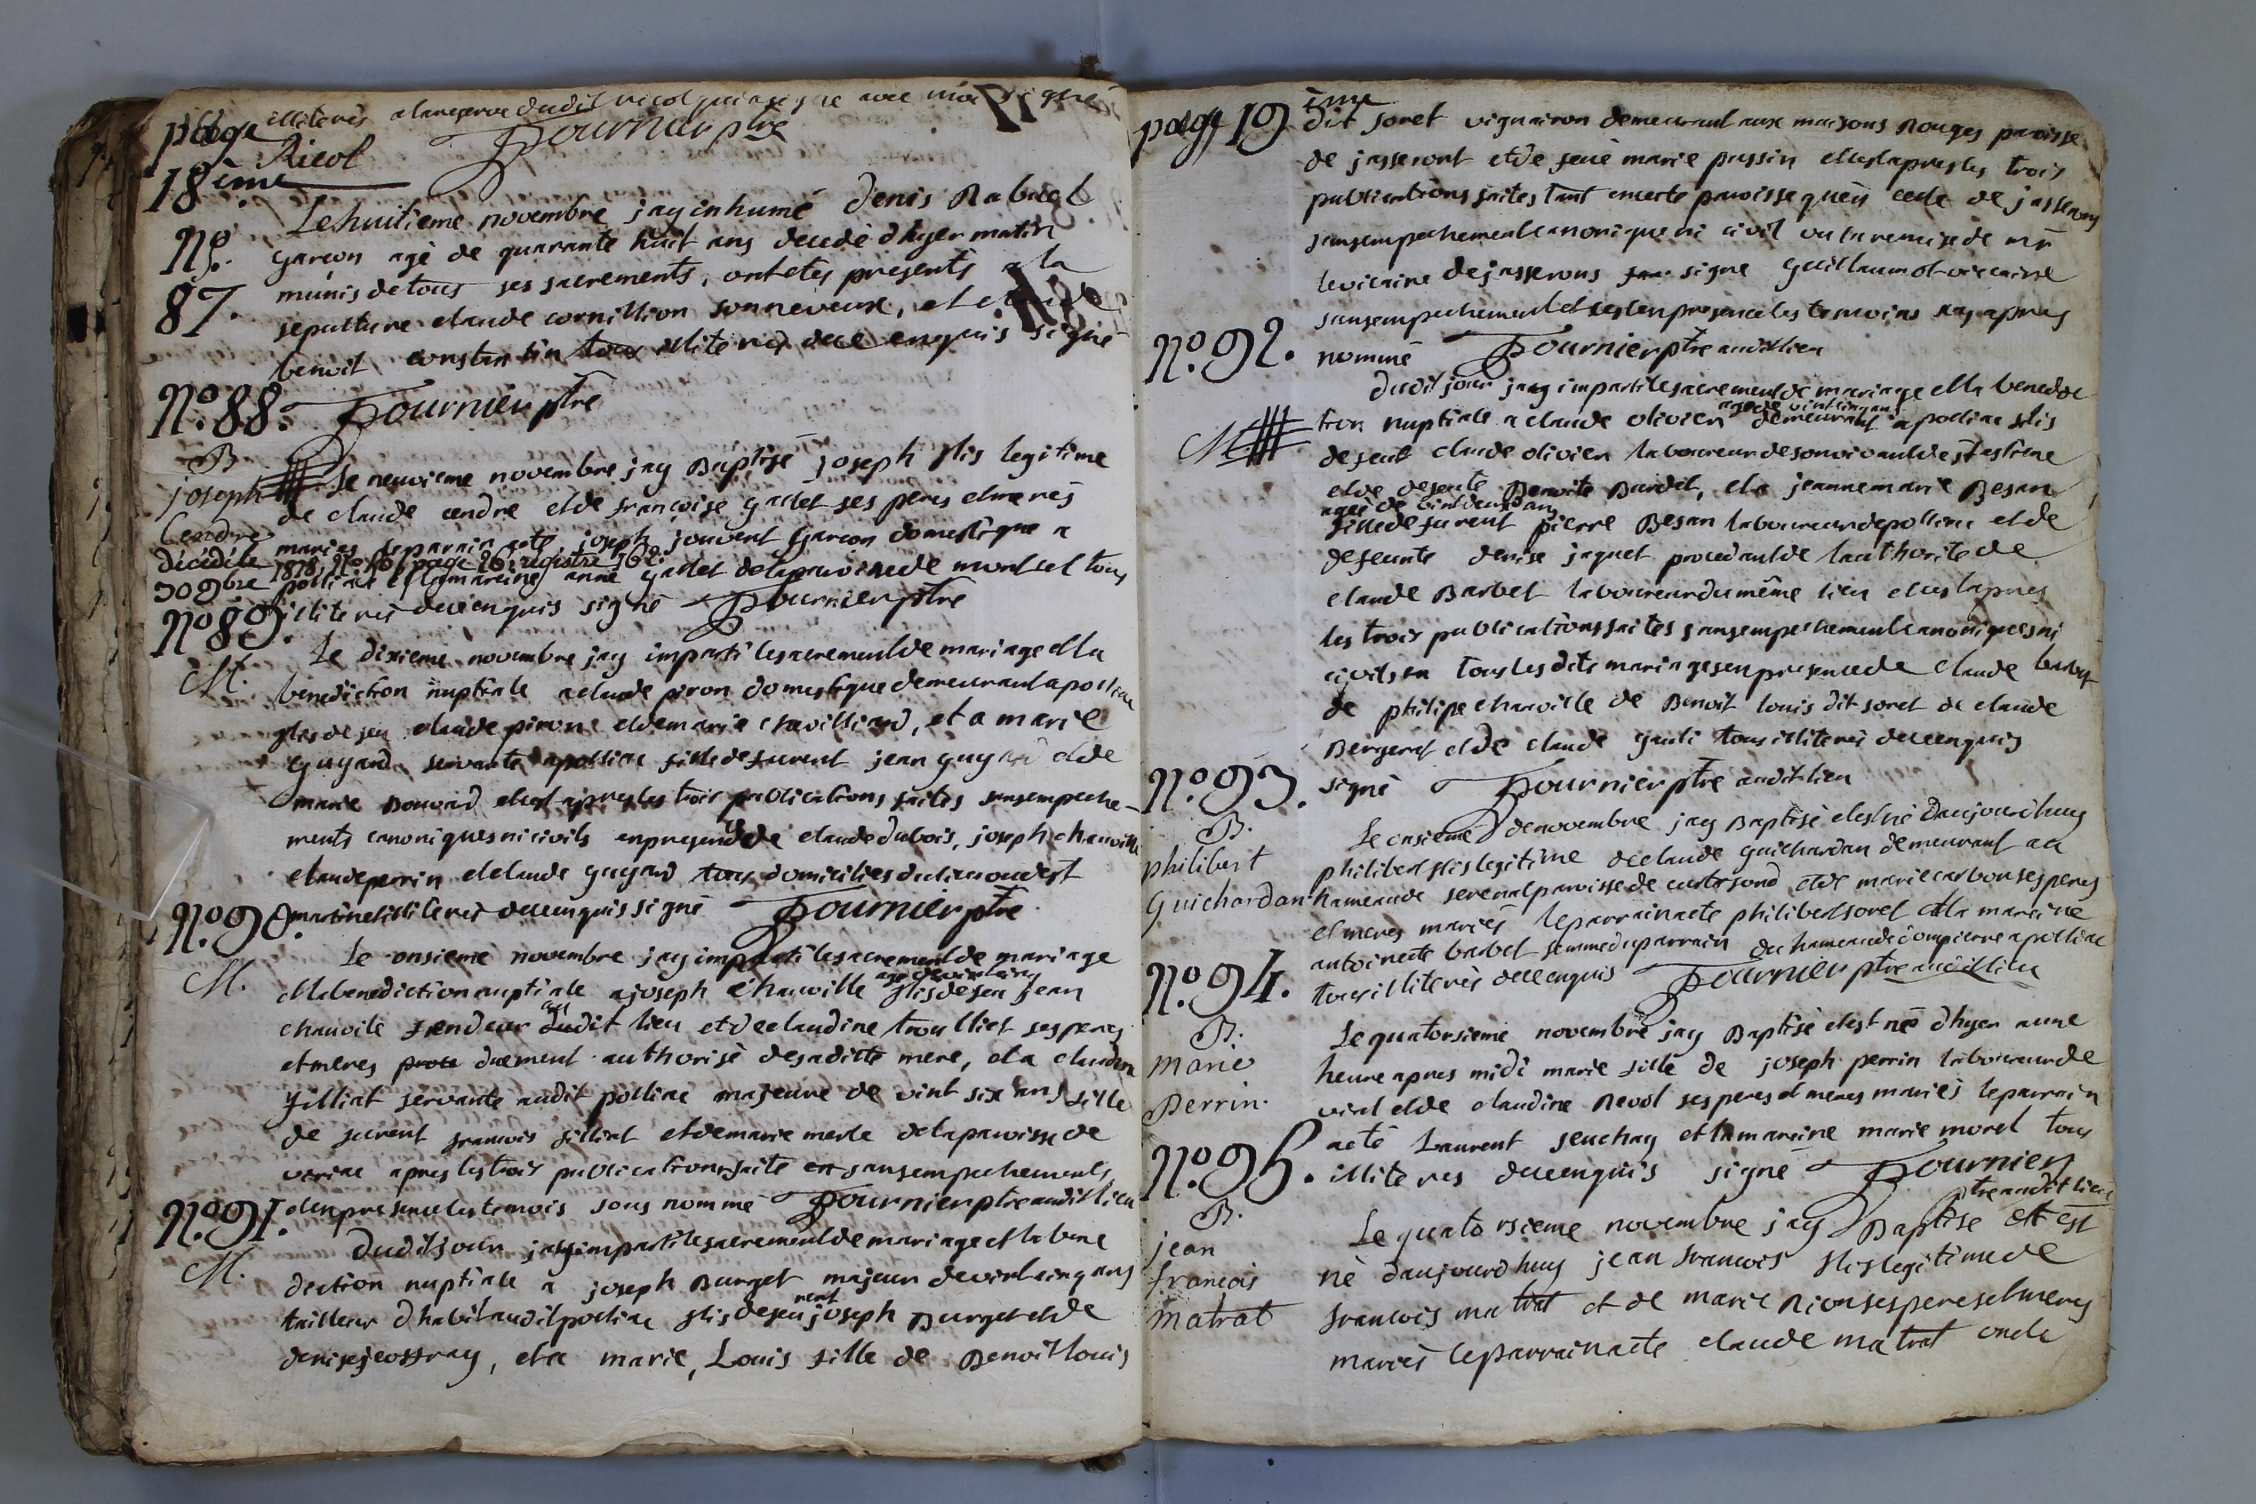 page
18.ème
illiterés a lareserve dudit ricol quia signe avec moi
Ricol Fournier ptre
N°.
87.
Le huitieme novembre jay inhumé Denis Rabuel
garcon agé de quarante huit ans decedé dhyer matin
munis de tous ses sacrements, ont etés presents a la
sepulture claude cornillion son neveux, et claude
benoit constantin tous illiterés de ce enquis signé
N°.88. Fournier ptre
B
joseph
Cendre
décédé le
30 9bre
1818, N° 10, page 26, registre 162.
Le neuvieme novembre jay Baptisé joseph filis legitime
de claude cendre et de francoise gallet ses peres et meres
mariés le parrain aeté joseph jouvent garcon domestique a
polliac et la mareine anne gallet de la paroisse de montcel tous
illiterés de ce enquis signé Fournier ptre
N°89.
M.
Le dixieme novembre jay imparti le sacrement de mariage et la
benediction nuptiale a claude piron domestique demeurant a polliac
filis de feu claude pirone et de marie chavilliard, et a marie
guyard servante a polliac fille de furent jean guyard et de
marie Bouvard et cest apres les trois publications faites sans empeche-
ments canoniques ni civils en presence de claude dubois, joseph chanville
claude perrin et claude guyard tous domiciliés du lieu ou de st
martin et illiterés de ce enquis signé Fournier ptre
N°.90.
M.
Le onsieme novembre jay imparti le sacrement de mariage
et la benediction nuptiale a joseph chanville agé de vint cinq filis de feu jean
chanvile fendeur audit lieu et de claudine troulliet ses peres
et meres duement authorisé de sa ditte mere, et a claudine
filliat servante audit polliac majeure de vint six ans fille
de furent francois filliat et de marie merle de la paroisse de
veriac apres les trois publications faite et sans empechements
et en presence les temois sous nommé Fournier ptre audit lieu
N°.91.
M.
Dudit jour jay imparti le sacrement de mariage et la bene
diction nuptiale a joseph Burget majeur de vint cinq ans
tailleur dhabit audit polliac filis de feu joseph Burget et de
denise jeoffray, et a marie, Louis fille de Benoit louis
page 19 ème
dit soret vigniron demeurant aux maisons Rouges paroisse
de jasseront et de feuë marie pussin et cest apres les trois
publications faites tant en cette paroisse quen celle de jasseron
sans empechement canonique ni civil vu la remise de mr
le vicaire de jasserons signe guillaumot viccaire
sans empechement et ses les en presence les temoins cy apres
nommé Fournier ptre audit lieu
N°.92.
M.
Dudit jour jay imparti le sacrement de mariage et la benedic
tion nuptiale a claude olivier agé de vint cinq ans demeurant a polliac filis
de feut claude olivier laboureur de son vivant de st estiene
et de defente Benoite Bardet, et a jeanne marie Besan
agée de vint deux ans
fille de furent pierre Besan laboureur de polliac et de
defeunte denise jaquet procedant de lauthorité de
claude Barbet laboureur du même lieu et cest apres
les trois publications faites sans empechement canoniques ni
civils en tous les dits mariages en presence de claude barbet
de philipe chanville de Benoit louis dit soret de claude
Bergeret et de claude gauti tous illiterés de ce enquis
signé Fournier ptre audit lieu
N°.93.
B.
philibert
Guichardan
Le onsieme de novembre jay Baptisé et est né daujourdhuy
philibert filis legitime de claude guichardan demeurant au
hameau de serenal paroisse de curtafond et de marie carbon ses peres
et meres mariés le parrain aeté philibert soret et la mareine
antoinette barbet femme du parrain du hameau de compierre a polliac
tous illiterés de ce enquis Fournier ptre audit lieu
N°.94.
B.
marie
Perrin.
Le quatorsieme novembre jay Baptisé et est née dhyer a une
heure apres midi marie fille de joseph perrin laboureur de
viret et de claudine Revol ses peres et meres mariés le parrain
aeté Laurent feuchay et la mareine marie morel tous
illiteres de ce enquis signé Fournier
ptre audit lieu
N°.95.
B.
jean
francois
matrat
Le quatorsieme novembre jay Baptise et est
né daujourdhuy jean francois filis legitime de
francois matrat et de marie Rion ses peres et meres
mariés le parrain aeté claude matrat oncle